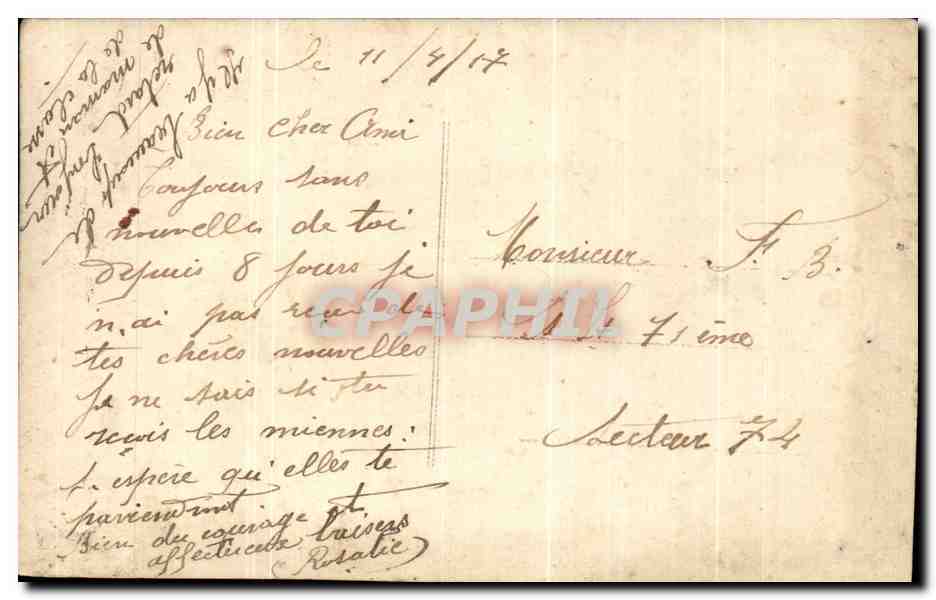 le 11/4/17
Bien cher Ami
Toujours sans
nouvelles de toi
depuis 8 jours je
n,ai pas reçu de
tes chères nouvelles
Je ne sais si tu
reçois les miennes :
J. espère qu'elles te
parviendront
Bien du courage et
affectueux baisers
Rosalie
Il y a beaucoup de
retard bonjour
de maman et
de la
Monsieur F B.
71 ème
Secteur 74
CPAPHIL